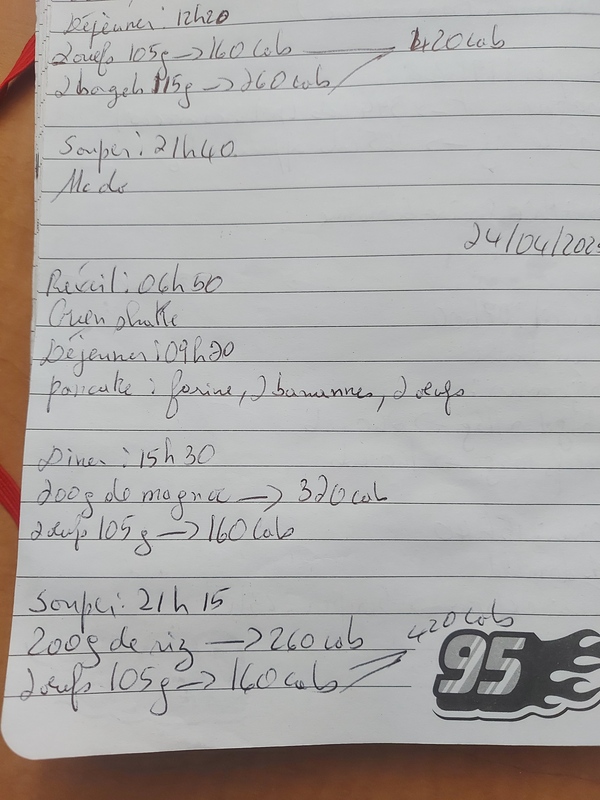 Déjeuner: 12h20
2 oeufs 105g -> 160 cab 420 cab
2 bagels 115g -> 260 cab
Souper: 21h40
Mcdo
24/04/202
Réveil: 06h50
Green shake
Déjeuner: 09h20
pancake: farine, 2 banannes, 2 oeufs
Diner: 15h30
200g de -> 320 cab
2 oeufs 105g -> 160 cab
Souper: 21h15
200g de riz -> 260 cab 420 cab
2 oeufs 105g -> 160 cab
95